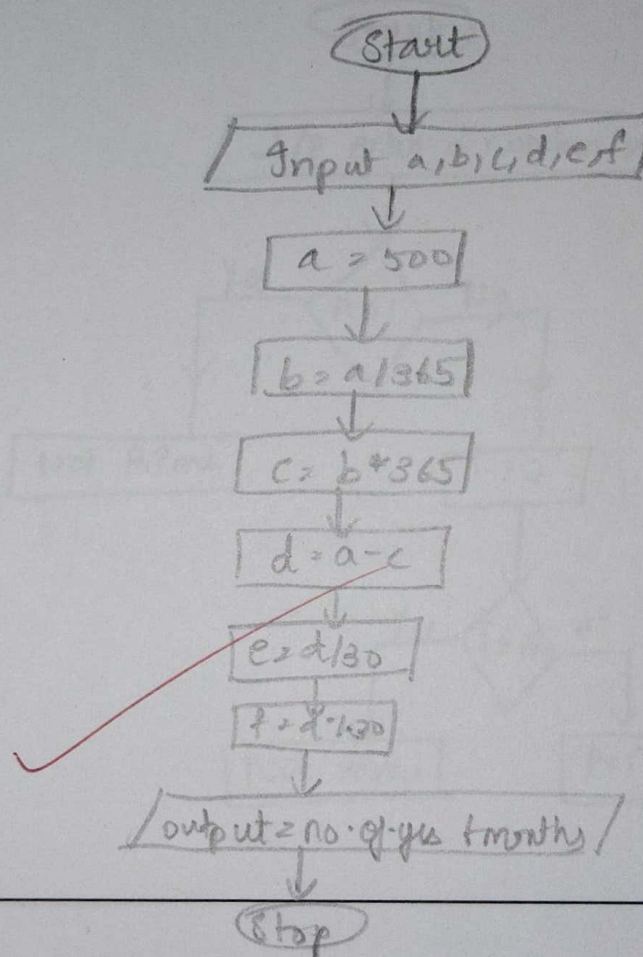 Start
Input a, b, c, d, e, f
a = 500
b = a/365
c = b*365
d = a-c
e = d/30
f = d%30
output = no. of. yrs + months
Stop